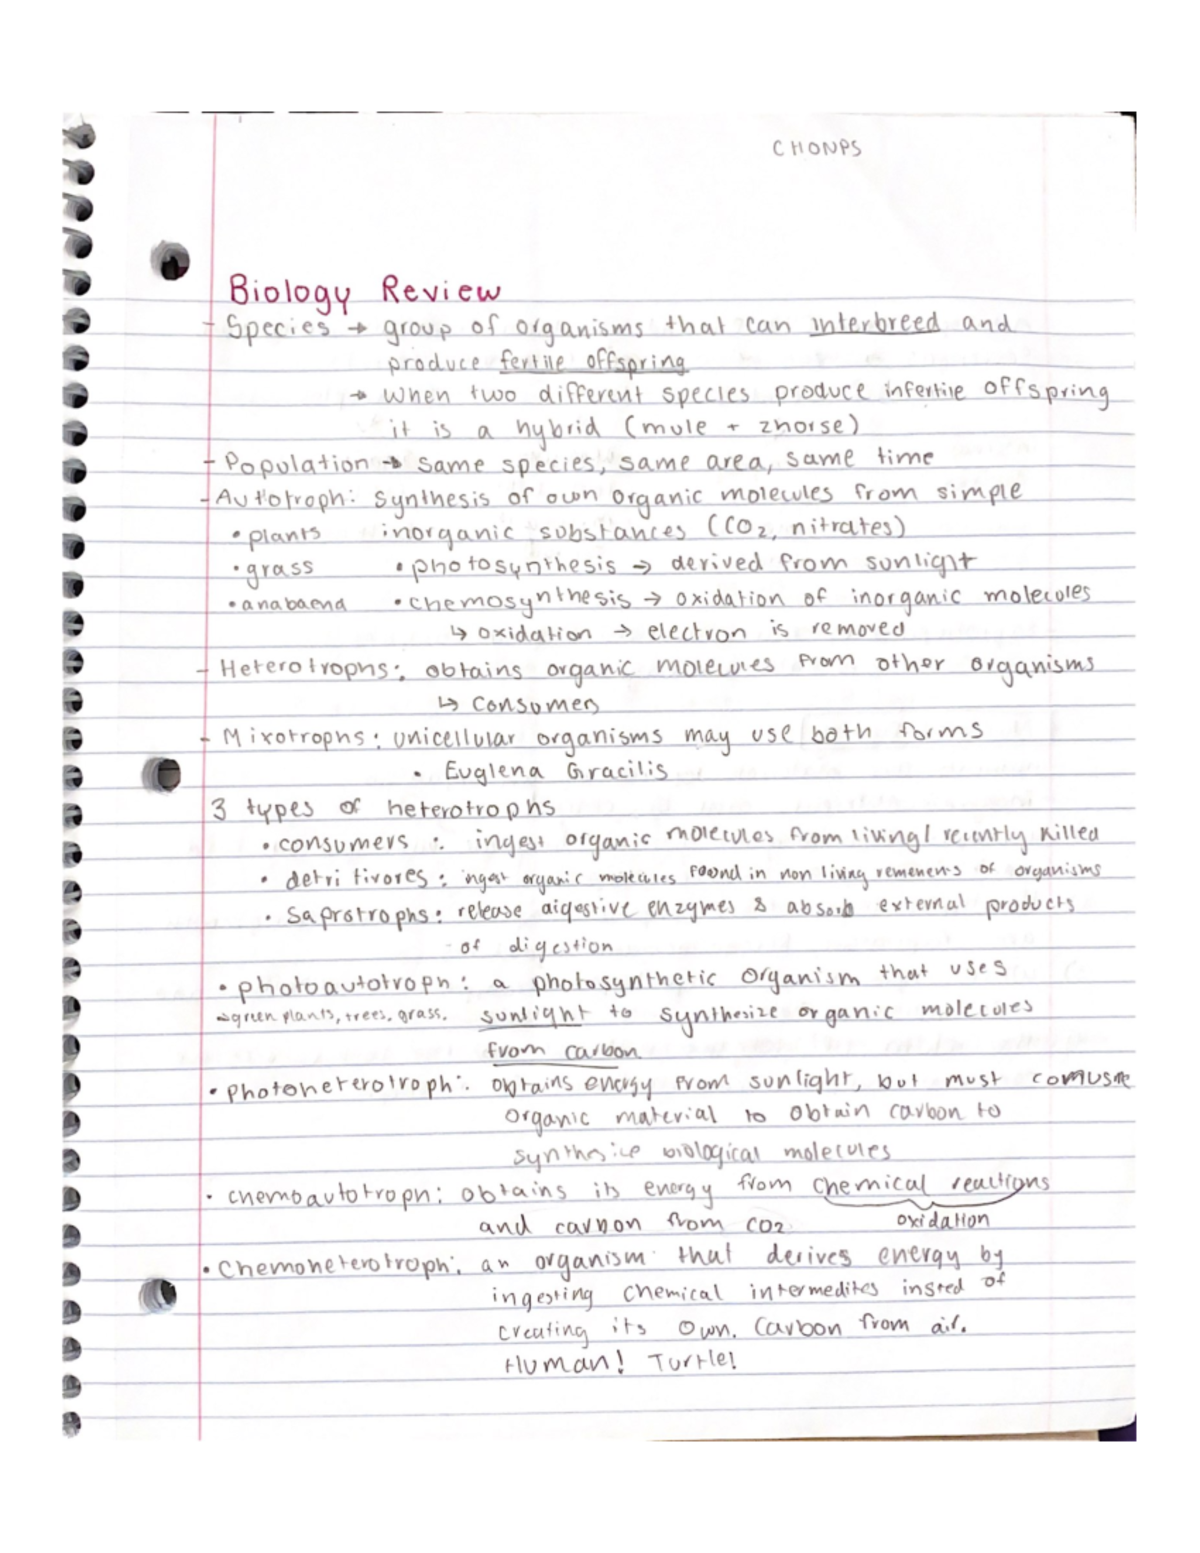 CHONPS
Biology Review
- Species → group of organisms that can interbreed and
produce fertile offspring
→ when two different species produce infertile offspring
it is a hybrid (mule + zhorse)
- Population → same species, same area, same time
- Autotroph: synthesis of own organic molecules from simple
• plants inorganic substances (CO2, nitrates)
• grass • photosynthesis → derived from sunlight
• anabaena • chemosynthesis → oxidation of inorganic molecules
↳ oxidation → electron is removed
- Heterotrophs: obtains organic molecules from other organisms
↳ consumers
- Mixotrophs: unicellular organisms may use both forms
• Euglena Gracilis
3 types of heterotrophs
• consumers: ingest organic molecules from living/ recently killed
• detritivores: ingest organic molecules found in non living remenens of organisms
• saprotrophs: release digestive enzymes & absorb external products
of digestion
• photoautotroph: a photosynthetic organism that uses
→ green plants, trees, grass. sunlight to synthesize organic molecules
from carbon
• photoheterotroph: obtains energy from sunlight, but must
organic material to obtain carbon to
synthesice biological molecules
• chemoautotroph: obtains its energy from chemical reactions
and carbon from CO2 oxidation
• Chemoheterotroph: an organism that derives energy by
ingesting chemical intermedites insted of
creating its own. Carbon from air.
Human! Turtle!